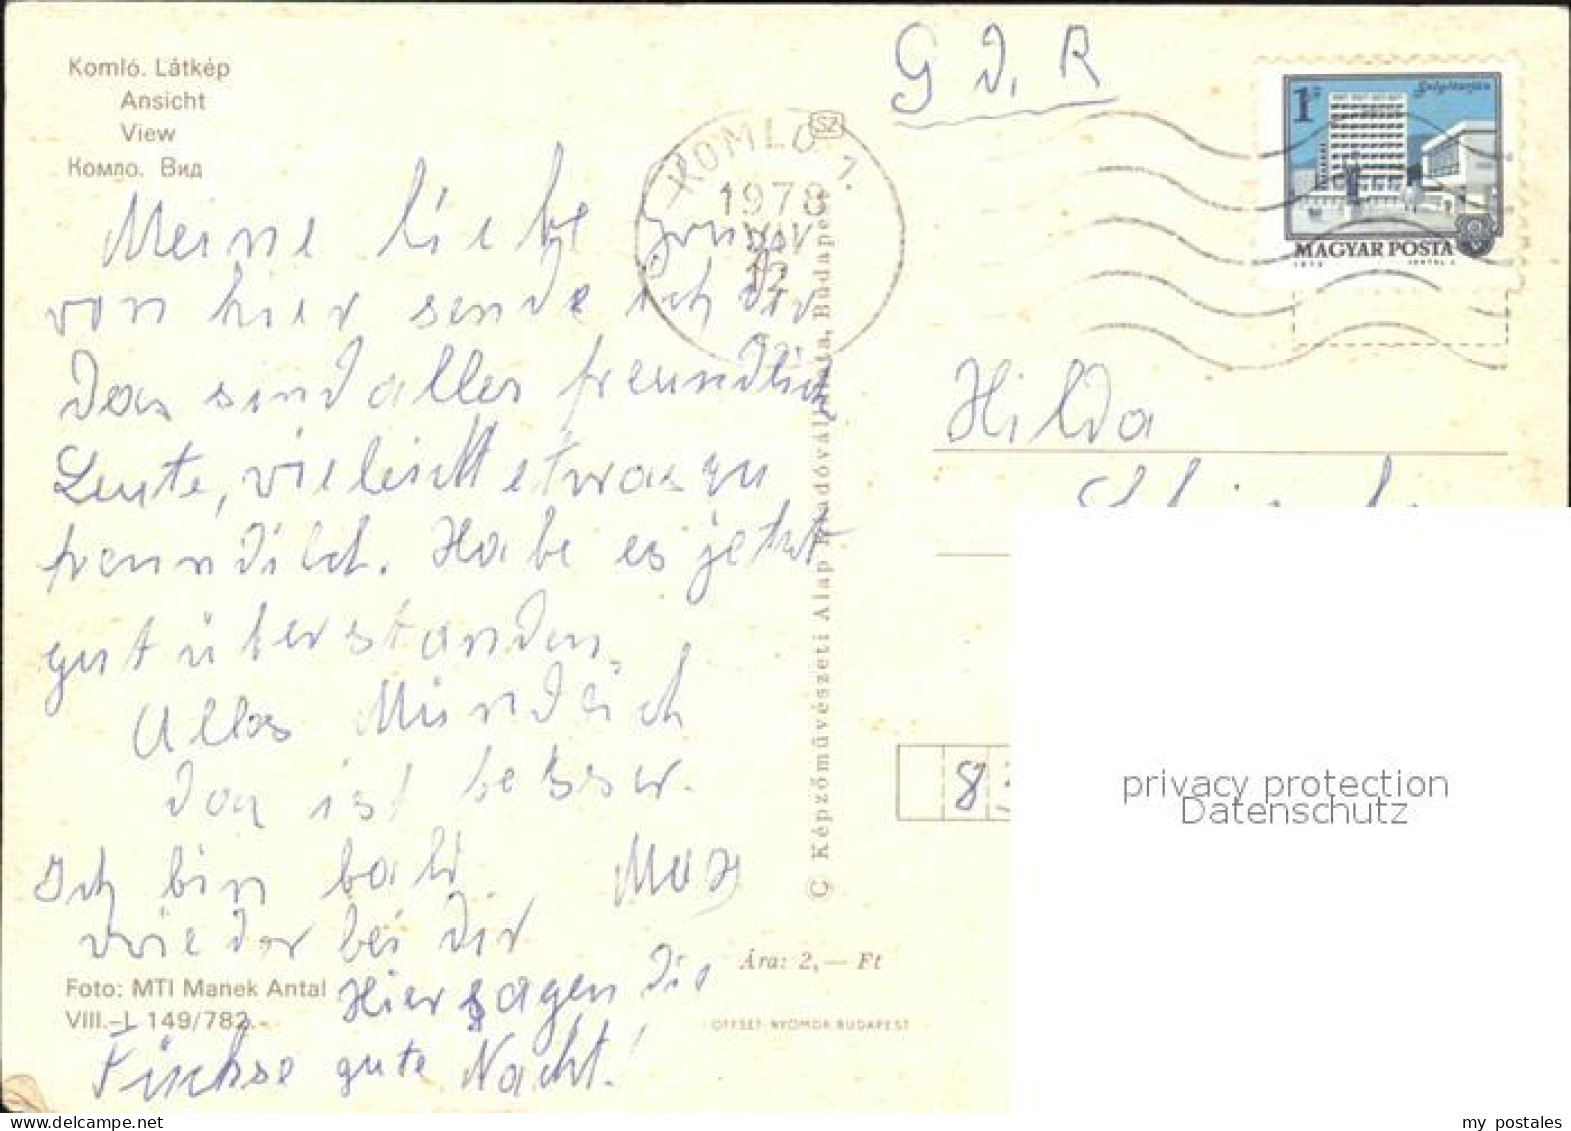 Komló. Látkép
Ansicht
View
Комло. Вид
G D. R
SZ
KOMLÓ 1.
1978
12
1 Ft
Salgótarján
MAGYAR POSTA
1973
Meine liebe
von hier sende ich dir
Das sind alles freundlich
Leute, vieleicht etwas zu
freundilch. Habe es jetzt
gut überstanden.
Alles Mündlich
das ist besser.
Ich bin bald
Max
wieder bei dir
Hier sagen die
Füchse gute Nacht!
Foto: MTI Manek Antal
VIII.–L 149/782.
Ára: 2,— Ft
OFFSET NYOMDA BUDAPEST
© Képzőművészeti Alap Kiadóvállalata, Budapest
Hilda
8
privacy protection
Datenschutz
my postales